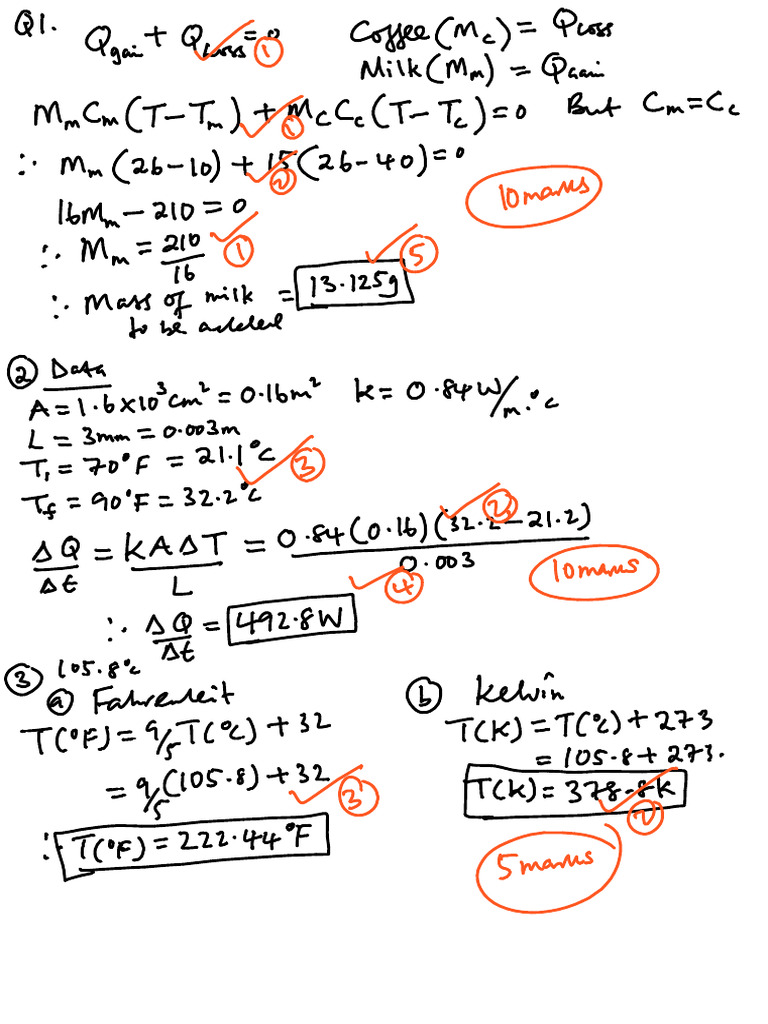 Q1.
Qgain + Qloss = 0 ① Coffee (Mc) = Qloss
Milk (Mm) = Qgain
MmCm(T-Tm) + McCc(T-Tc) = 0 ① But Cm = Cc
∴ Mm(26-10) + 15(26-40) = 0 ②
16Mm - 210 = 0 10 marks
∴ Mm = 210/16 ①
∴ Mass of milk to be added = 13.125g ⑤
② Data
A = 1.6×10³cm² = 0.16m² k = 0.84W/m.°c
L = 3mm = 0.003m
T₁ = 70°F = 21.1°c ③
Tf = 90°F = 32.2°c
ΔQ/Δt = KAΔT/L = 0.84(0.16)(32.2-21.2)/0.003 ② 10 marks
∴ ΔQ/Δt = 492.8W ④
③ 105.8°c
ⓐ Fahrenheit
T(°F) = 9/5 T(°c) + 32
= 9/5 (105.8) + 32 ③
∴ T(°F) = 222.44°F
ⓑ Kelvin
T(K) = T(°c) + 273
= 105.8 + 273.
T(K) = 378.8K ②
5 marks